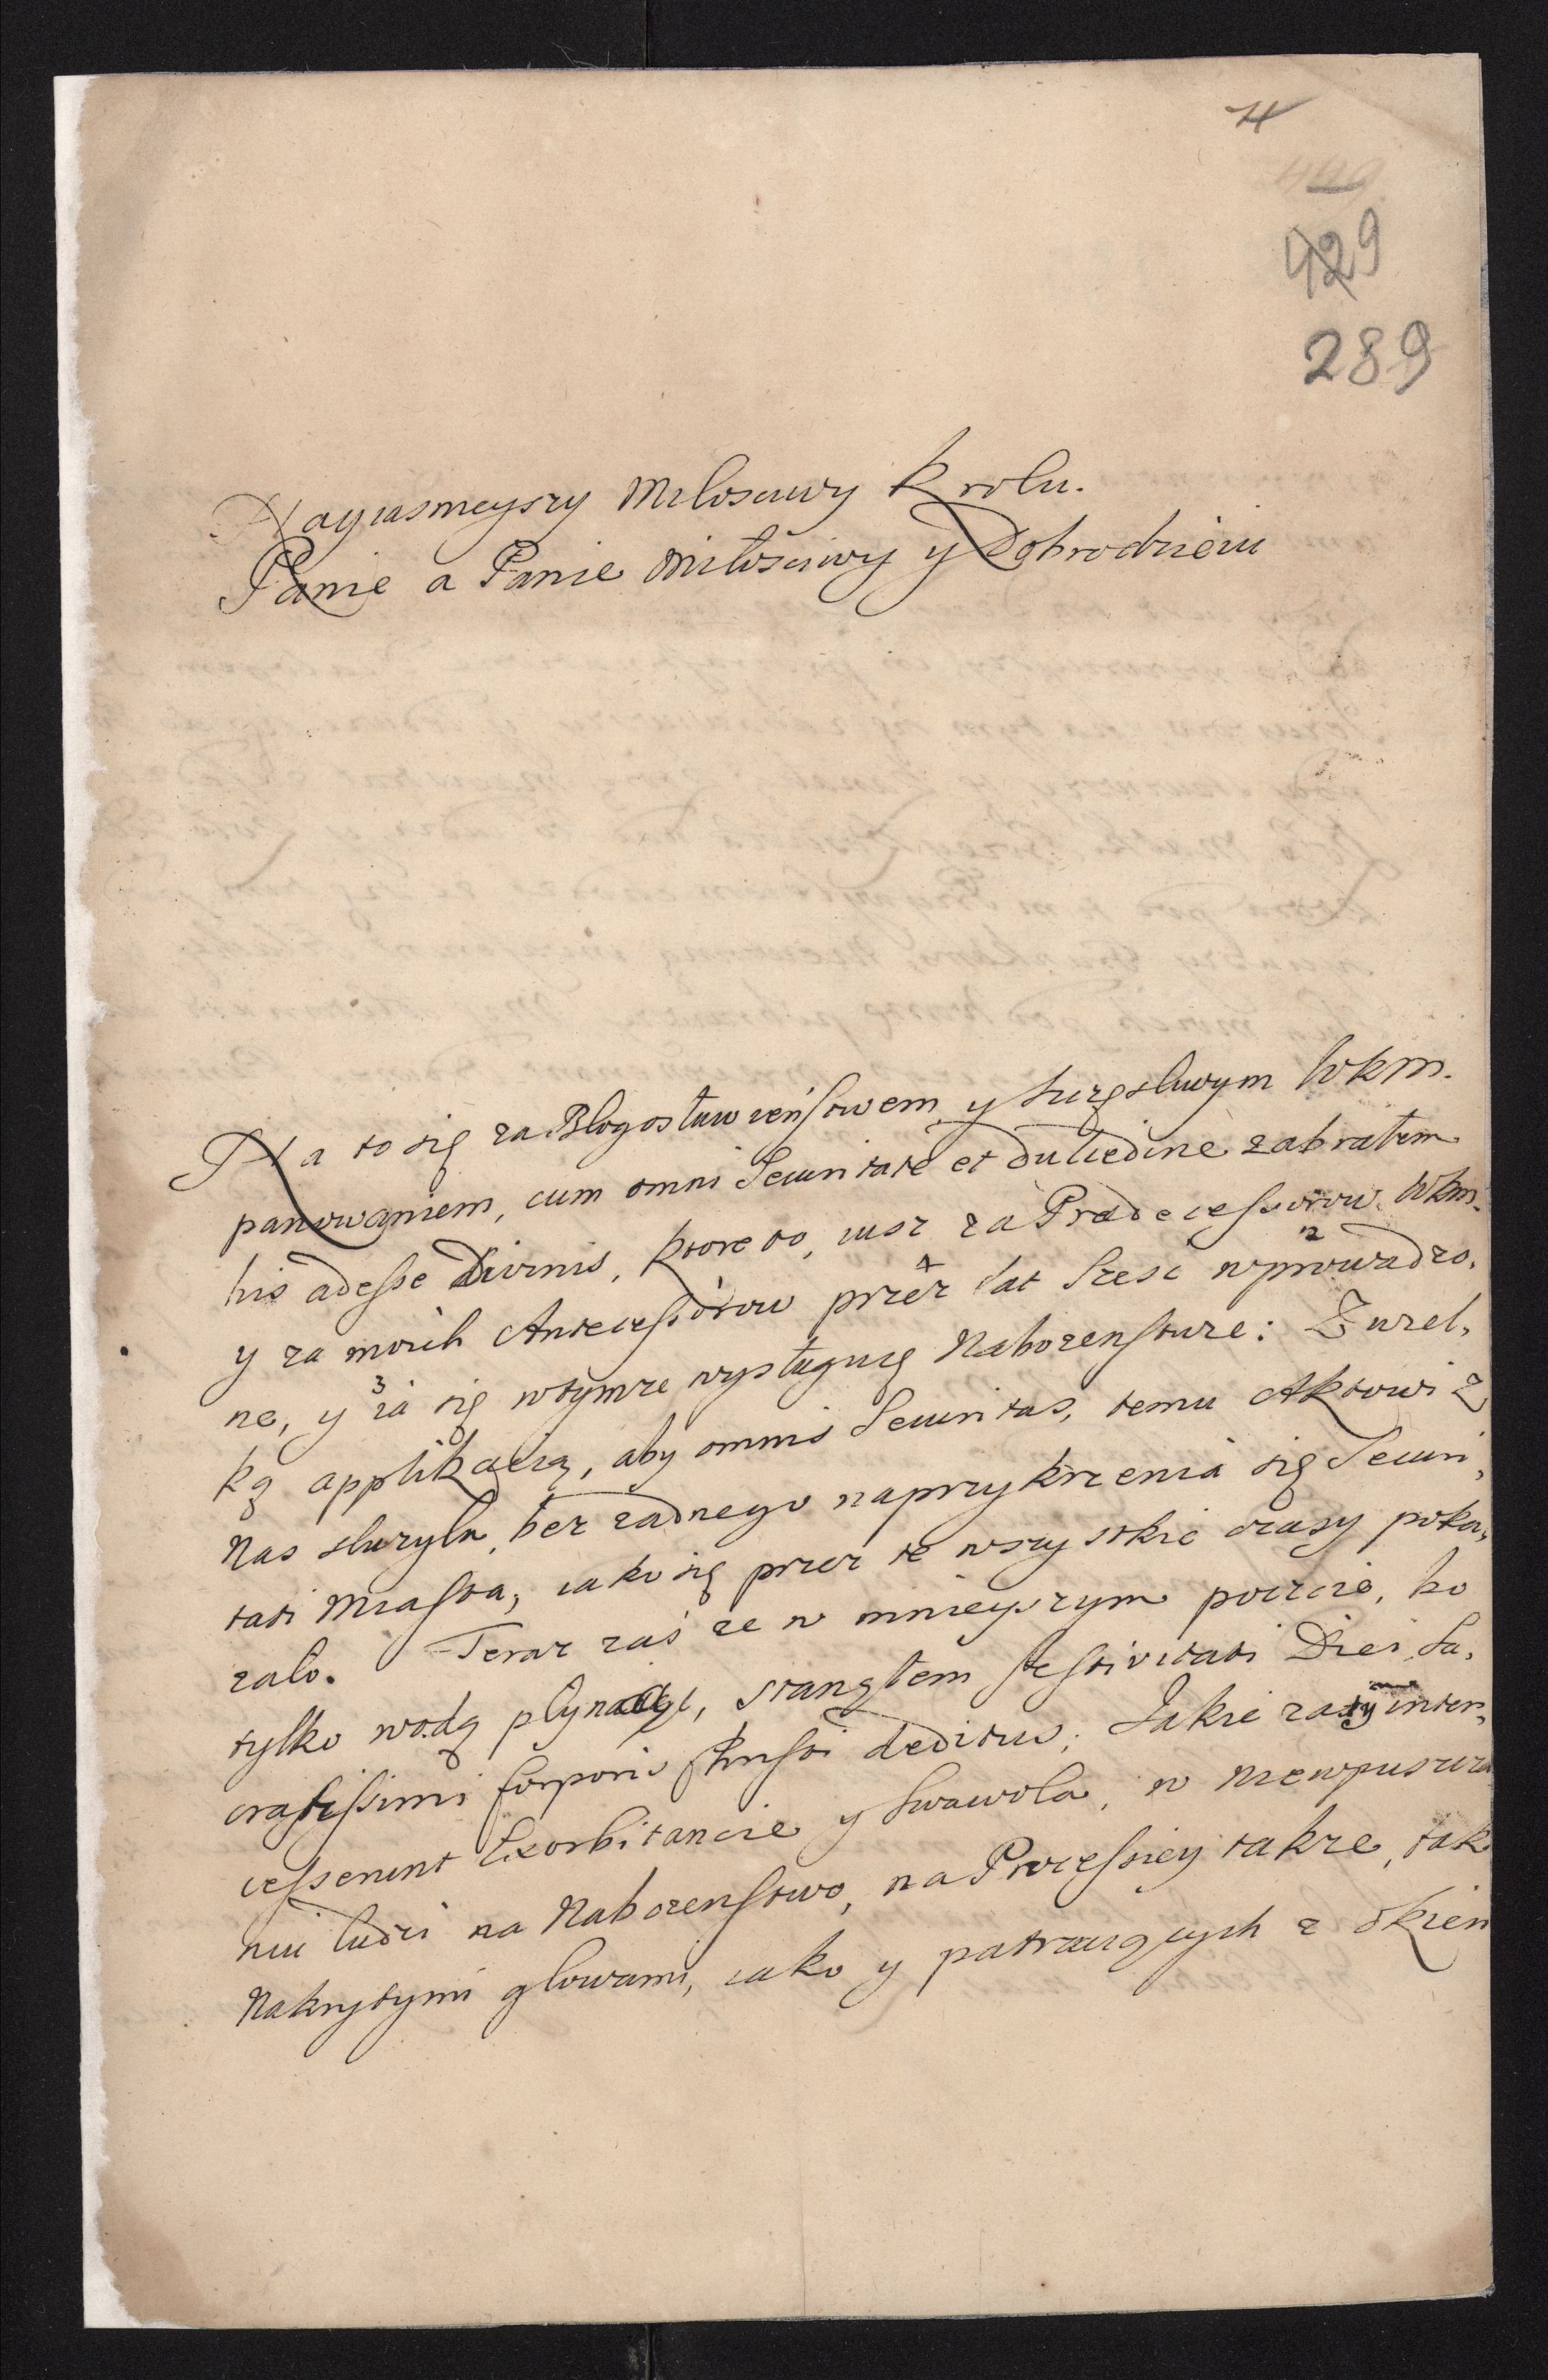 4
429
289
Nayiasnieyszy Miłosciwy Krolu.
Panie a Panie Miłosciwy y Dobrodzieiu
Na to się za Błogosławieństwem y szczęsliwym WKM.
panowaniem, cum omni Securitate et dulcedine zabrałem
his adesse Divinis, ktore to, iusz za Predecessorow WKM.
y za moich Antecessorow przez 4 lat szesc wprowadzo, 2
ne, y 3 ia się wtymze wysługuię Nabozenstwie: Z wiel,
ką applikacią, aby omnis Securitas, temu Aktowi z
Nas sluzyła, bez zadnego naprzykrzenia się Securi,
tati Miasta, iako się przez te wszystkie czasy poka,
zalo. Teraz zaś ze w mnieyszym poczcie, bo
tylko wodą płynący, stanąłem festivitati Diei Sa,
cratissimi Corporis Christi deditus; Jakie zas inter,
cesserunt Exorbitancie y Swawola, w niewpuszcza
niu ludzi na Nabozenstwo, na Processiey takze, tak
Nakrytymi głowami, iako y patrzaiących z okien